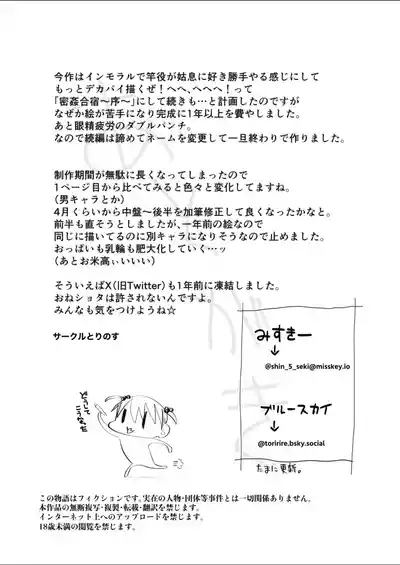 今作はインモラルで竿役が姑息に好き勝手やる感じにして
もっとデカパイ描くぜ！へへ、へへへ！って
「密姦合宿～序～」にして続きも…と計画したのですが
なぜか絵が苦手になり完成に1年以上を費やしました。
あと眼精疲労のダブルパンチ。
なので続編は諦めてネームを変更して一旦終わりで作りました。
制作期間が無駄に長くなってしまったので
1ページ目から比べてみると色々と変化してますね。
（男キャラとか）
4月くらいから中盤～後半を加筆修正して良くなったかなと。
前半も直そうとしましたが、一年前の絵なので
同じに描いてるのに別キャラになりそうなので止めました。
おっぱいも乳輪も肥大化していく…ッ
（あとお米高ぃいいい）
そういえばX（旧Twitter）も1年前に凍結しました。
おねショタは許されないんですよ。
みんなも気をつけようね☆
サークルとりのす
あとがき
みすきー
↓
@shin_5_seki@misskey.io
ブルースカイ
↓
@toririre.bsky.social
たまに更新。
この物語はフィクションです。実在の人物・団体等事件とは一切関係ありません。
本作品の無断複写・複製・転載・翻訳を禁じます。
インターネット上へのアップロードを禁じます。
18歳未満の閲覧を禁じます。